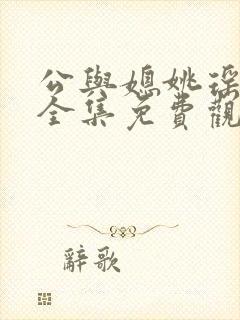 公與媳姚瑶
全集免費觀
辭歌